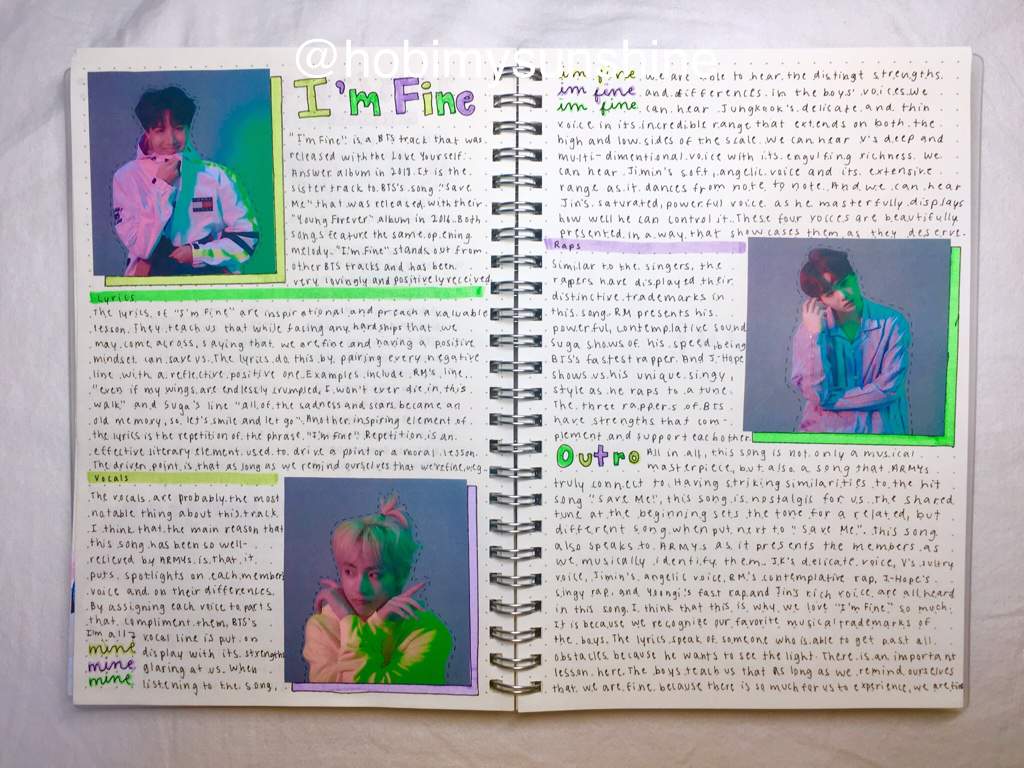 @hobimysunshine
I'm Fine
"I'm Fine" is a BTS track that was
released with the Love Yourself:
Answer album in 2018. It is the
sister track to BTS's song "Save
Me" that was released with their
"Young Forever" album in 2016. Both
songs feature the same opening
melody. "I'm Fine" stands out from
other BTS tracks and has been
very lovingly and positively received
Lyrics
The lyrics of "I'm Fine" are inspirational and preach a valuable
lesson. They teach us that while facing any hardships that we
may come across, saying that we are fine and having a positive
mindset can save us. The lyrics do this by pairing every negative
line with a reflective positive one. Examples include RM's line,
"even if my wings are endlessly crumpled, I won't ever die in this
walk" and Suga's line "all of the sadness and scars became an
old memory, so let's smile and let go". Another inspiring element of
the lyrics is the repetition of the phrase "I'm fine". Repetition is an
effective literary element used to drive a point or a moral lesson.
The driven point is that as long as we remind ourselves that we're fine, we
Vocals
The vocals are probably the most
notable thing about this track.
I think that the main reason that
this song has been so well-
recieved by ARMYs is that it
puts spotlights on each members
voice and on their differences.
By assigning each voice to parts
that compliment them, BTS's
I'm all vocal line is put on
mine display with its strengths
mine glaring at us. When
mine listening to the song,
im fine we are able to hear the distinct strengths
im fine and differences in the boys' voices. We
im fine can hear Jungkook's delicate and thin
voice in its incredible range that extends on both the
high and low sides of the scale. We can hear V's deep and
multi-dimentional voice with its engulfing richness. We
can hear Jimin's soft, angelic voice and its extensive
range as it dances from note to note. And we can hear
Jin's saturated, powerful voice as he masterfully displays
how well he can control it. These four voices are beautifully
presented in a way that showcases them as they deserve.
Raps
Similar to the singers, the
rappers have displayed their
distinctive trademarks in
this song. RM presents his
powerful, contemplative sound
Suga shows of his speed, being
BTS's fastest rapper. And J-Hope
shows us his unique singy
style as he raps to a tune.
The three rappers of BTS
have strengths that com-
plement and support each other
Outro All in all, this song is not only a musical
masterpiece, but also a song that ARMYs
truly connect to. Having striking similarities to the hit
song "Save Me", this song is nostalgis for us. The shared
tune at the beginning sets the tone for a related, but
different song when put next to "Save Me". This song
also speaks to ARMYs as it presents the members as
we musically identify them. JK's delicate voice, V's sultry
voice, Jimin's angelic voice, RM's contemplative rap, J-Hope's
singy rap, and Yoongi's fast rap and Jin's rich voice are all heard
in this song. I think that this is why we love "I'm Fine" so much.
It is because we recognize our favorite musical trademarks of
the boys. The lyrics speak of someone who is able to get past all
obstacles because he wants to see the light. There is an important
lesson here. The boys teach us that as long as we remind ourselves
that we are fine because there is so much for us to experience, we are fine